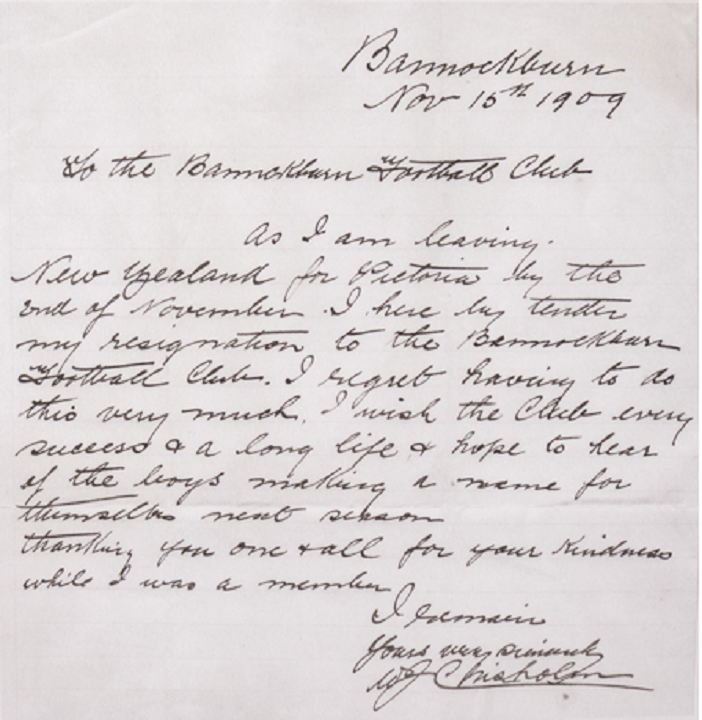 Bannockburn
Nov 15th 1909
To the Bannockburn Football Club
As I am leaving
New Zealand for Victoria by the
end of November. I here by tender
my resignation to the Bannockburn
Football Club. I regret having to do
this very much. I wish the Club every
success & a long life & hope to hear
of the boys making a name for
themselves next season
thanking you one & all for your kindness
while I was a member
I remain
Yours very sincerely
W J Chisholm